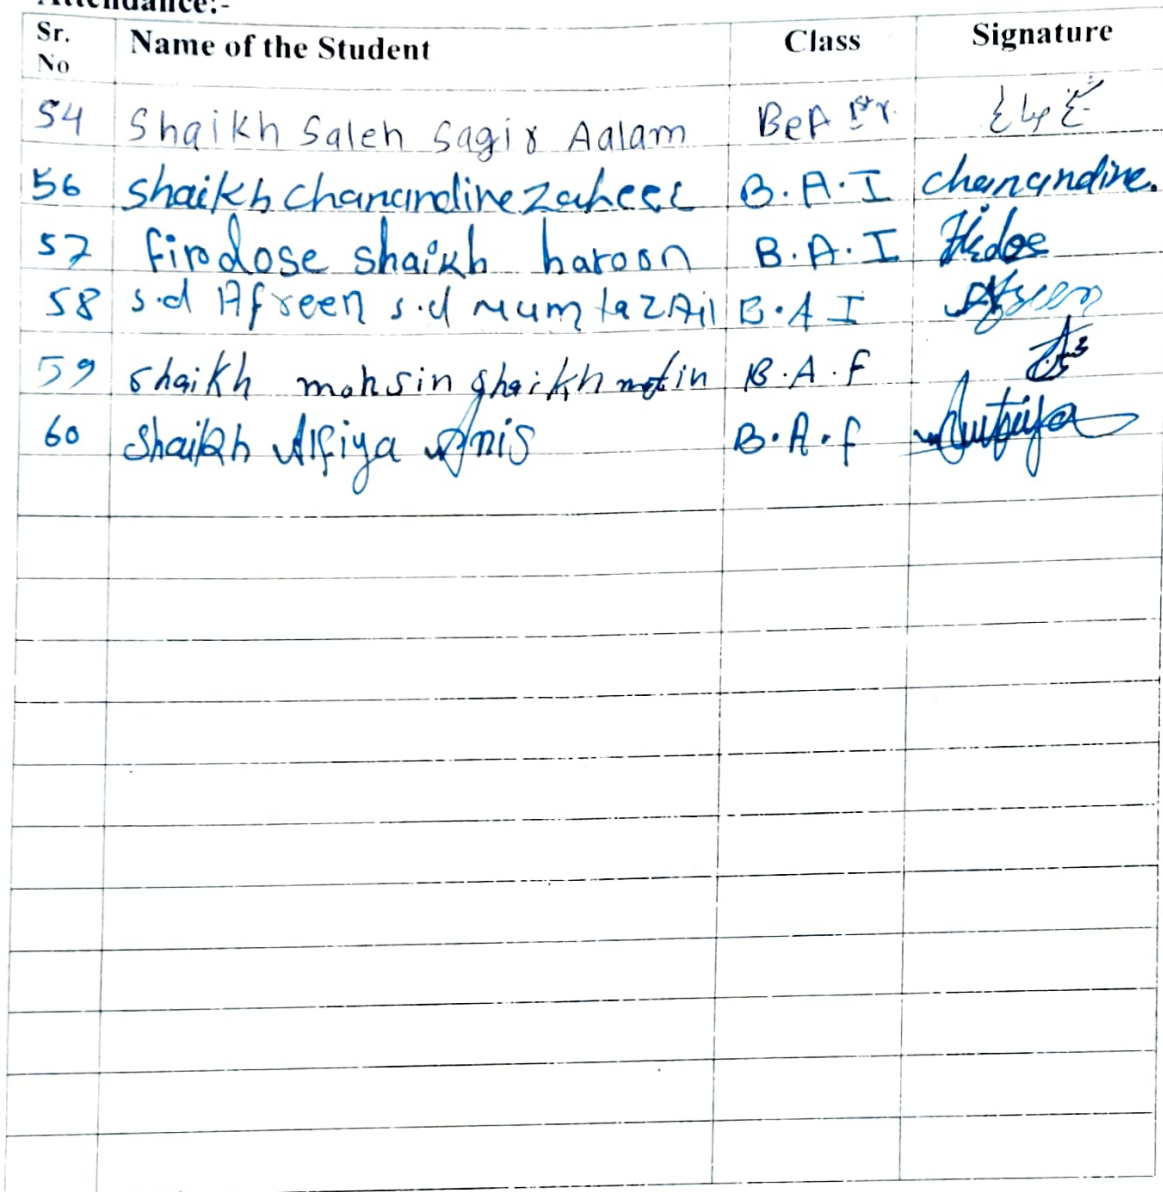 Attendance:-
Sr. No Name of the Student Class Signature
54 Shaikh Saleh Sagir Aalam BeA 1st Yr.
56 Shaikh Chanandine Zaheer B.A.I chanandine.
57 firdose shaikh haroon B.A.I
58 s.d Afreen s.d Mumtaz Ail B.A I Afreen
59 Shaikh mohsin Shaikh motin B.A.F
60 Shaikh Alfiya Anis B.A.f